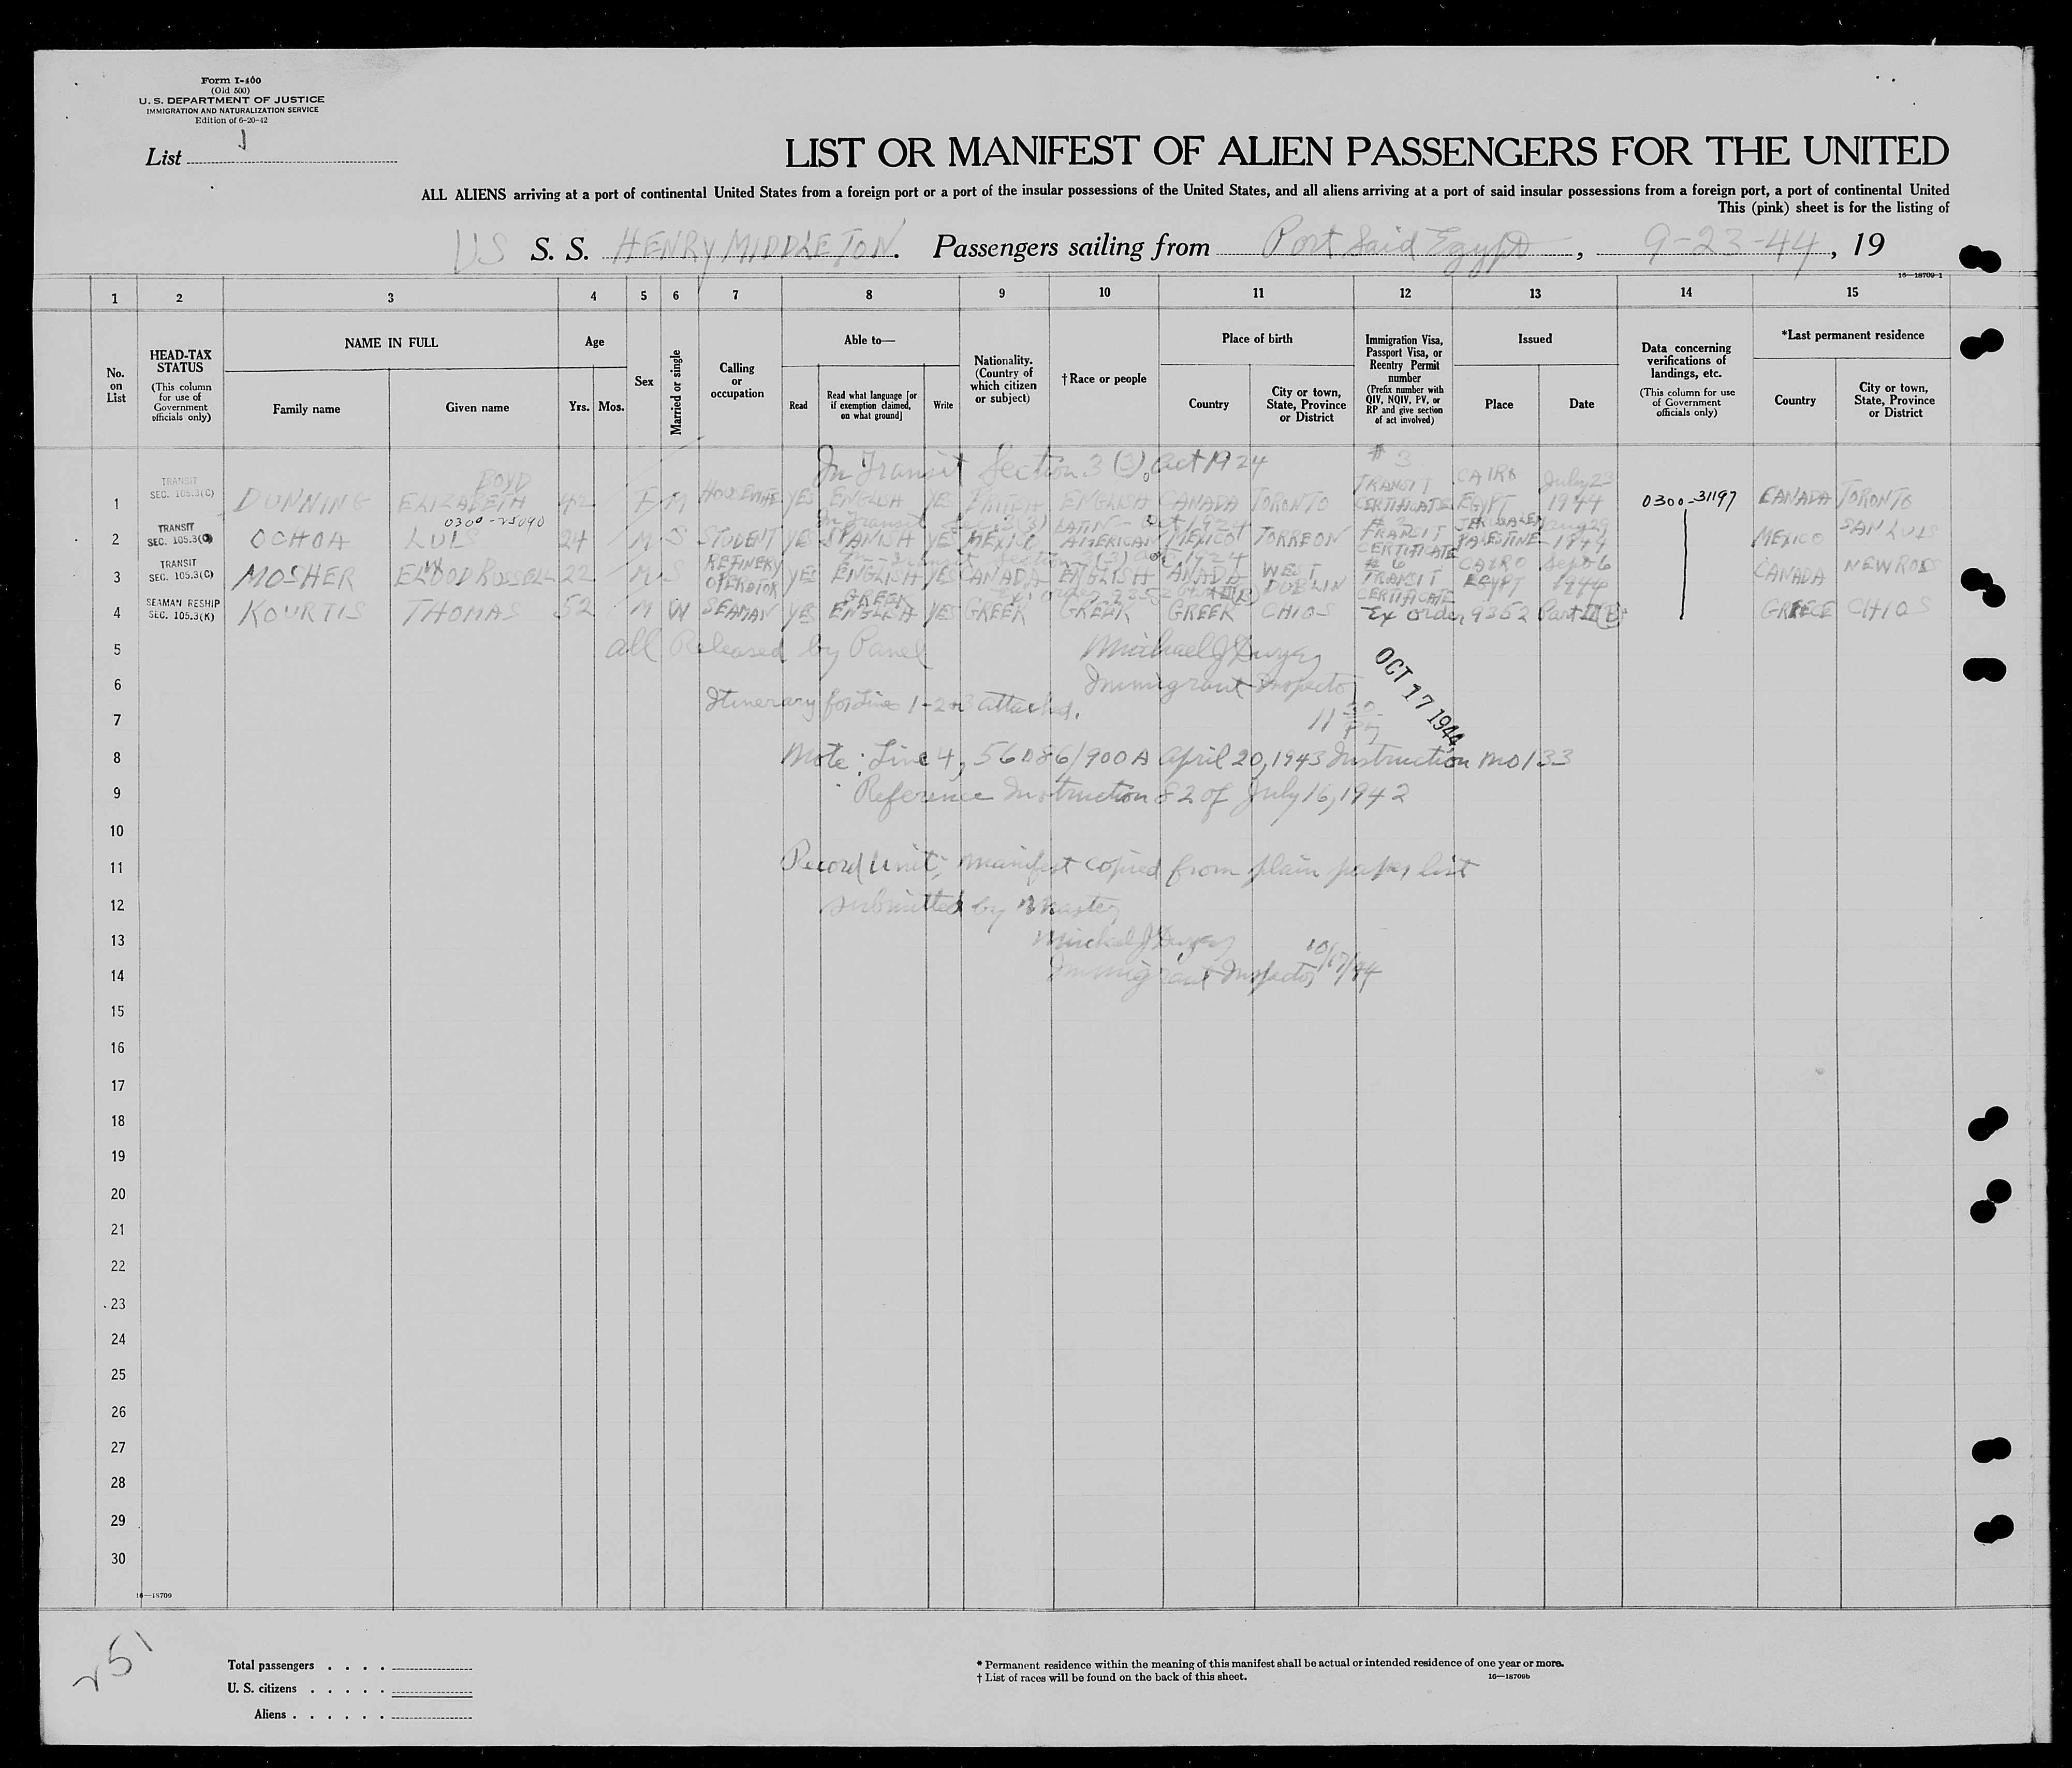 Form I-400
(Old 500)
U. S. DEPARTMENT OF JUSTICE
IMMIGRATION AND NATURALIZATION SERVICE
Edition of 6-20-42
List 1
LIST OR MANIFEST OF ALIEN PASSENGERS FOR THE UNITED
ALL ALIENS arriving at a port of continental United States from a foreign port or a port of the insular possessions of the United States, and all aliens arriving at a port of said insular possessions from a foreign port, a port of continental United
This (pink) sheet is for the listing of
US S. S. HENRY MIDDLETON. Passengers sailing from Port Said Egypt, 9-23-44, 19
16—18709-1
1 2 3 4 5 6 7 8 9 10 11 12 13 14 15
No. on List
HEAD-TAX STATUS (This column for use of Government officials only)
NAME IN FULL
Family name Given name
Age
Yrs. Mos.
Sex
Married or single
Calling or occupation
Able to—
Read Read what language [or if exemption claimed, on what ground] Write
Nationality. (Country of which citizen or subject)
†Race or people
Place of birth
Country City or town, State, Province or District
Immigration Visa, Passport Visa, or Reentry Permit number (Prefix number with QIV, NQIV, PV, or RP and give section of act involved)
Issued
Place Date
Data concerning verifications of landings, etc. (This column for use of Government officials only)
*Last permanent residence
Country City or town, State, Province or District
In Transit Section 3 (3), Act 1924
1 TRANSIT SEC. 105.3(C) DUNNING ELIZABETH BOYD 42 F M HOUSEWIFE YES ENGLISH YES BRITISH ENGLISH CANADA TORONTO #3 TRANSIT CERTIFICATE CAIRO EGYPT July 23 1944 0300-31197 CANADA TORONTO
0300-25040
In Transit Sec. 3(3) Act 1924
2 TRANSIT SEC. 105.3(C) OCHOA LUIS 24 M S STUDENT YES SPANISH YES MEXICO LATIN-AMERICAN MEXICO TORREON TRANSIT CERTIFICATE JERUSALEM PALESTINE Aug 29 1944 MEXICO SAN LUIS
In Transit Section 3(3) Act 1924
3 TRANSIT SEC. 105.3(C) MOSHER ELWOOD RUSSELL 22 M S REFINERY OPERATOR YES ENGLISH YES CANADA ENGLISH CANADA WEST DUBLIN #6 TRANSIT CERTIFICATE CAIRO EGYPT Sept 6 1944 CANADA NEW ROSS
4 SEAMAN RESHIP SEC. 105.3(K) KOURTIS THOMAS 52 M W SEAMAN YES GREEK ENGLISH YES GREEK GREEK GREEK CHIOS Ex Order 9352 Part II (B) GREECE CHIOS
5 All Released by Panel Michael J Dwyer
6 Immigrant Inspector
OCT 17 1944
7 Itinerary for Lines 1-2-3 attached.
8 Note: Line 4, 56086/900A April 20, 1943 Instruction No 133
9 Reference Instruction 82 of July 16, 1942
10
11 Record Unit; Manifest copied from plain paper list
12 submitted by Master
13 Michael J Dwyer
14 Immigrant Inspector 10/17/44
15
16
17
18
19
20
21
22
23
24
25
26
27
28
29
30
16—18709
251
Total passengers . . . .
U. S. citizens . . . . .
Aliens . . . . . .
* Permanent residence within the meaning of this manifest shall be actual or intended residence of one year or more.
† List of races will be found on the back of this sheet.
16—18709b